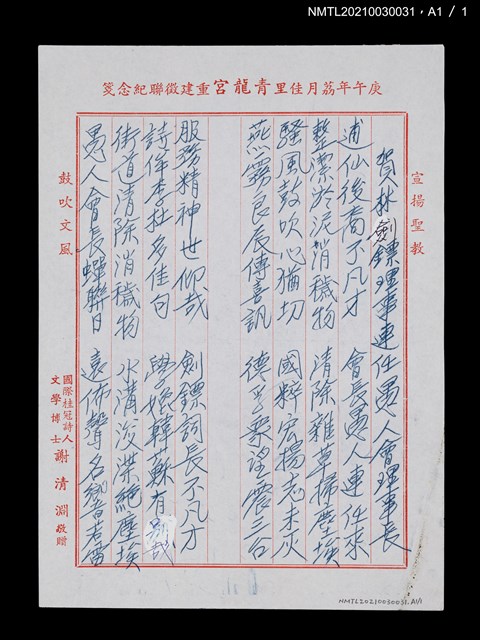 NMTL20210030031, A1 / 1
庚午年荔月佳里青龍宮重建徵聯紀念箋
宣揚聖教
賀林劍鏢理事連任愚人會理事長
逋仙後裔不凡才 會長愚人連任來
整潔於泥消穢物 清除雜草掃塵埃
騷風鼓吹心猶切 國粹宏揚志未灰
燕霧良辰傳喜訊 德孚眾望震三台
服務精神世仰哉 劍鏢詞長不凡才
詩作李杜多佳句 學媲韓蘇有
街道清除消穢物 水溝浚渫絕塵埃
愚人會長蟬聯日 遠佈聲名響若雷
鼓吹文風
國際桂冠詩人
文學博士
謝清淵敬贈
NMTL20210030031.A1/1